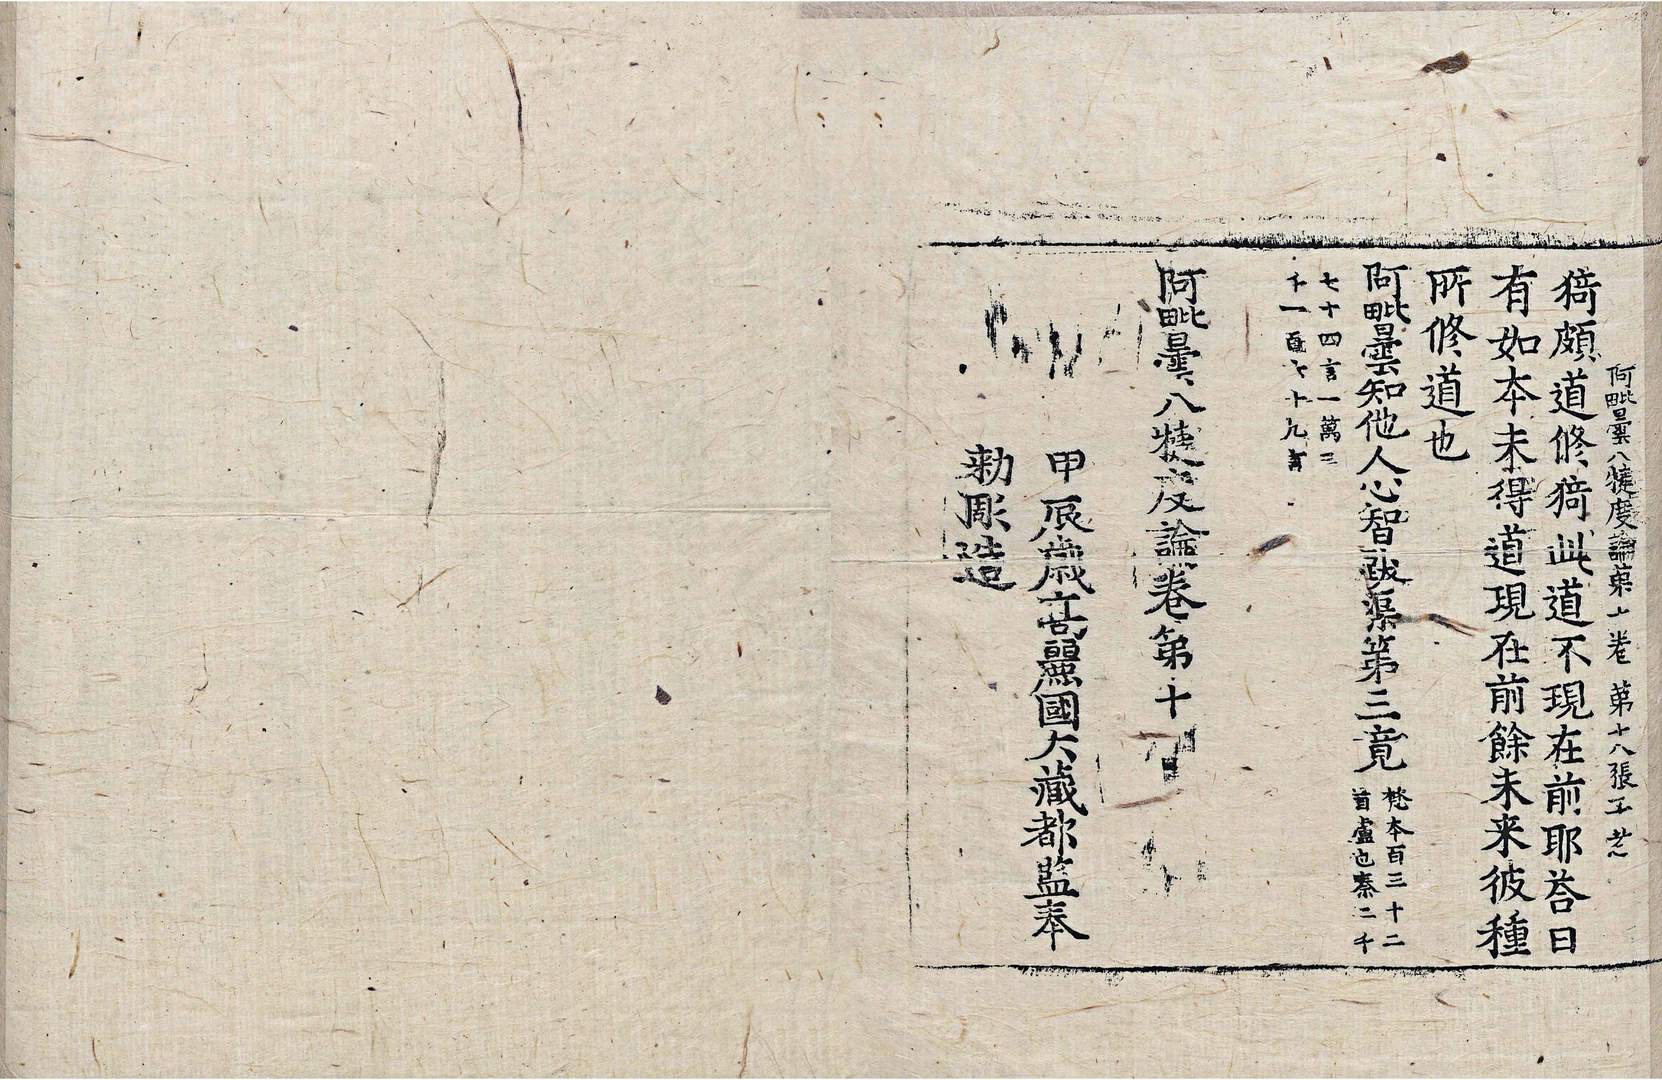 阿毗曇八犍度論第十卷 第十八張
猗頗道修猗此道不現在前耶荅曰
有如本未得道現在前餘未來彼種
所修道也
阿毗曇知他人心智跋渠第三竟 梵本百三十二
首盧也秦二千
七十四言一萬三
千一百七十九言
阿毗曇八犍度論卷第十
甲辰歲高麗國大藏都監奉
勅彫造